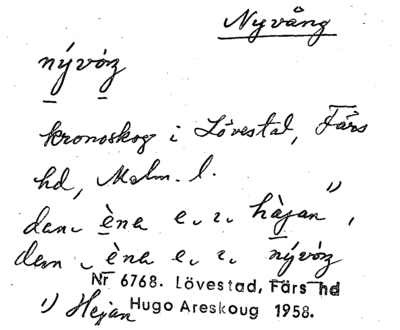 Nyvång
nývóŋ
kronoskog i Lövestad, Färs
hd, Malm. l.
den èna e. r. hàjan ¹⁾,
den èna e. r. nývóŋ
Nr 6768. Lövestad, Färs hd
¹⁾ Hejan
Hugo Areskoug 1958.